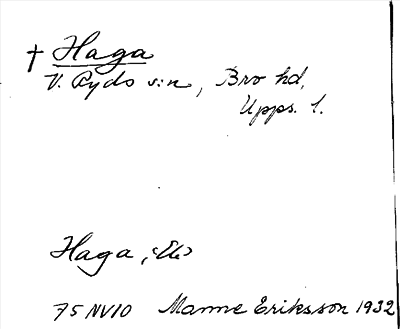 † Haga
V. Ryds s:n, Bro hd,
Upps. l.
Haga,
75 NV10 Manne Eriksson 1932